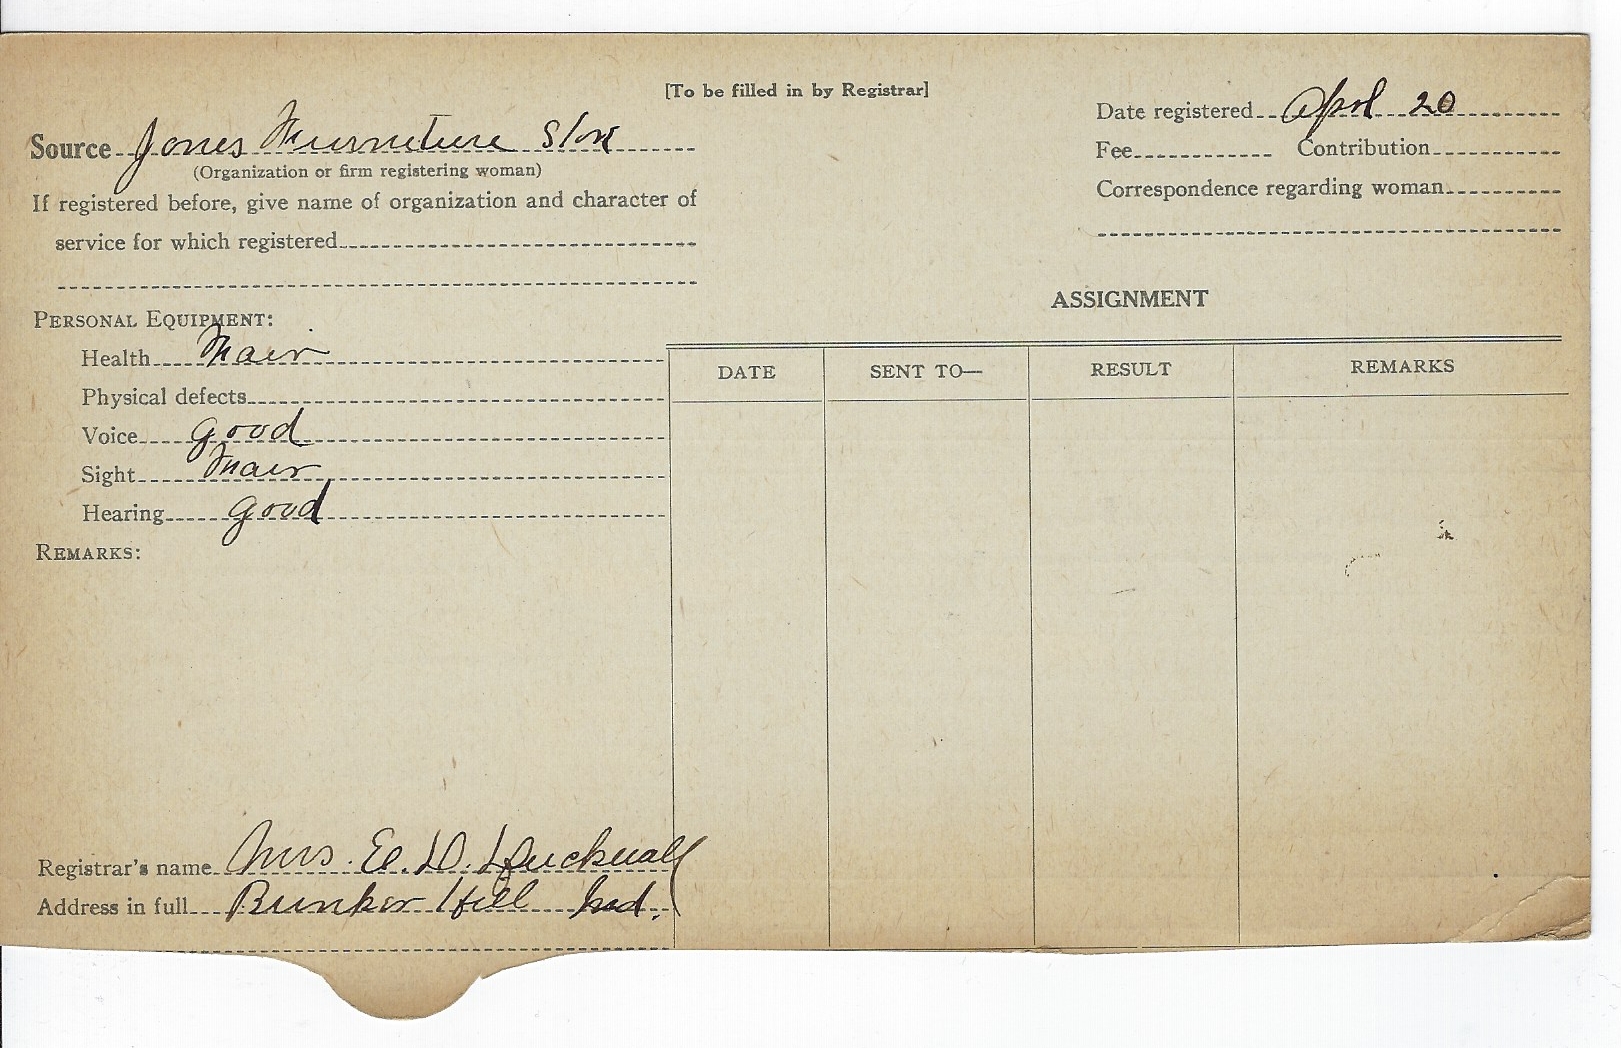 [To be filled in by Registrar]
Source Jones Furniture Store
(Organization or firm registering woman)
If registered before, give name of organization and character of
service for which registered
Date registered April 20
Fee Contribution
Correspondence regarding woman
PERSONAL EQUIPMENT:
Health Fair
Physical defects
Voice good
Sight Fair
Hearing good
REMARKS:
ASSIGNMENT
DATE SENT TO— RESULT REMARKS
Registrar's name Mrs. E. D.
Address in full Bunker Hill Ind.